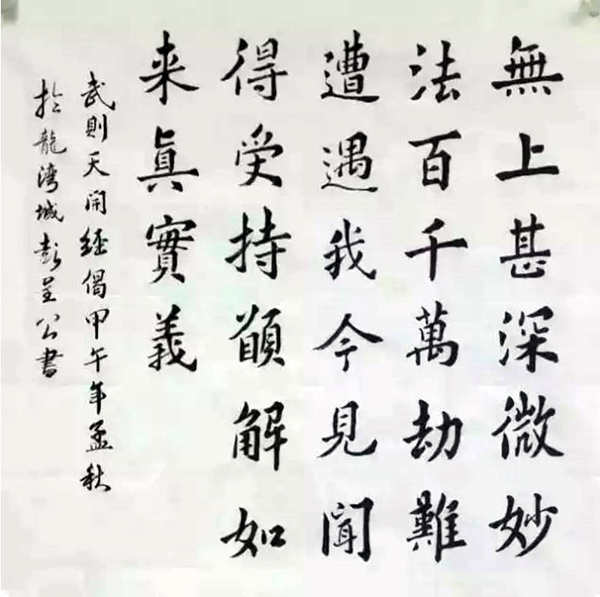 無上甚深微妙
法百千萬劫難
遭遇我今見聞
得受持願解如
来真實義
武則天開經偈甲午年孟秋
於龍灣城彭呈公書